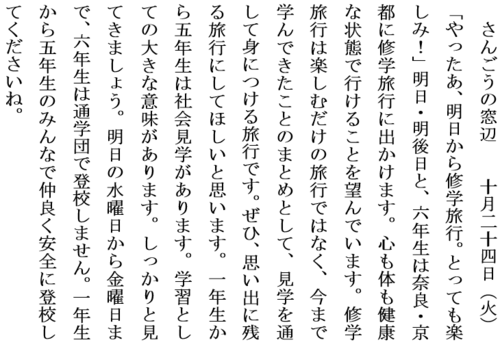 さんごうの窓辺　　十月二十四日（火）
「やったあ、明日から修学旅行。とっても楽
しみ！」明日・明後日と、六年生は奈良・京
都に修学旅行に出かけます。心も体も健康
な状態で行けることを望んでいます。修学
旅行は楽しむだけの旅行ではなく、今まで
学んできたことのまとめとして、見学を通
して身につける旅行です。ぜひ、思い出に残
る旅行にしてほしいと思います。一年生か
ら五年生は社会見学があります。学習とし
ての大きな意味があります。しっかりと見
てきましょう。明日の水曜日から金曜日ま
で、六年生は通学団で登校しません。一年生
から五年生のみんなで仲良く安全に登校し
てくださいね。